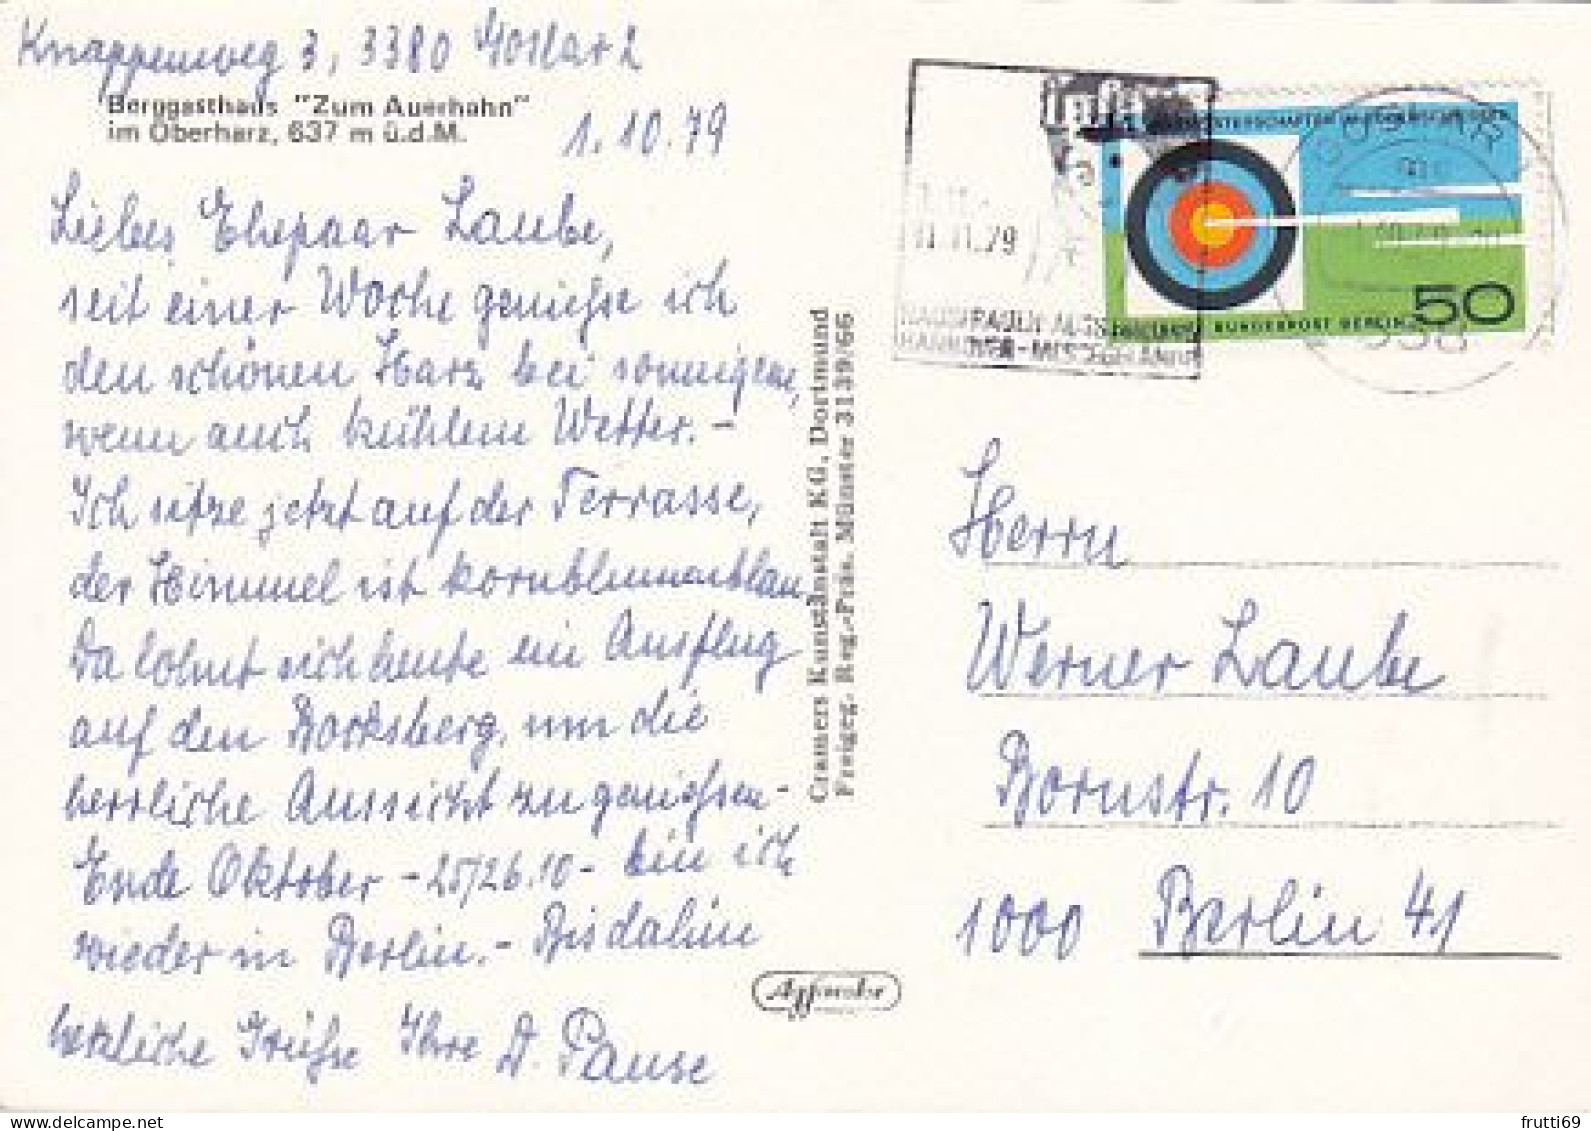 Knappenweg 3, 3380 Goslar 2
Berggasthaus "Zum Auerhahn"
im Oberharz, 637 m ü.d.M.
1.10.79
Liebes Ehepaar Laube,
seit einer Woche genieße ich
den schönen Harz bei sonnigem,
wenn auch kühlem Wetter. –
Ich sitze jetzt auf der Terrasse,
der Himmel ist kornblumenblau.
Da lohnt sich heute ein Ausflug
auf den Bocksberg, um die
herrliche Aussicht zu genießen –
Ende Oktober – 25/26.10 – bin ich
wieder in Berlin. – Bis dahin
herzliche Grüße Ihre D. Pause
Cramers Kunstanstalt KG, Dortmund
Freigeg. Reg.-Präs. Münster 3139/66
infa
11.79
HAUSFRAUEN
HANNOVER-MESSEGELÄNDE
GOSLAR
338
DEUTSCHE BUNDESPOST BERLIN
50
Herrn
Werner Laube
Bornstr. 10
1000 Berlin 41
frutti69